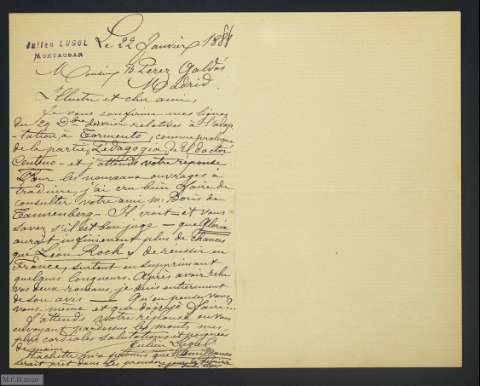 Julien LUGOL
MONTAUBAN
Le 22 Janvier 188
B Perez Galdós
Madrid.
Illustre et cher ami,
Je vous confirme mes lignes
du 29 Dbre dernier relatives à l'adap
-tation à Tormento, comme prologue
de la partie, Pedagogia, de El doctor
Centeno - et j'attends votre réponse
Pour les nouveaux ouvrages à
traduire, j'ai cru bien faire de
consulter votre ami, M. Boris de
Tannenberg - Il croit - et vous
savez s'il est bon juge - que Gloria
aurait infiniment plus de chances
que Léon Roch de réussir en
France, surtout en supprimant
quelques longueurs. Après avoir relu
vos deux romans, je suis entièrement
de son avis - Qu'en pensez vous
vous même et que dois-je faire
J'attends votre réponse en vous
envoyant pardessus les monts mes
plus cordiales salutations et poignées
de main
Julien Lugol
Hachette m'a promis que
serait prêt dans les premiers jours de
M.C.D. 2022